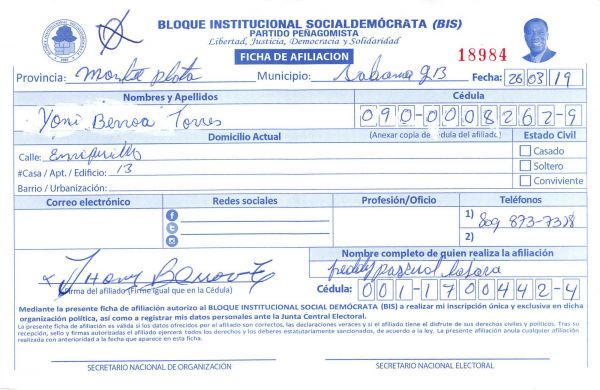 BLOQUE INSTITUCIONAL SOCIALDEMÓCRATA (BIS)
PARTIDO PEÑAGOMISTA
Libertad, Justicia, Democracia y Solidaridad
FICHA DE AFILIACION
18984
Provincia: Monte plata Municipio: Sabana GB Fecha: 26 03 19
Nombres y Apellidos Cédula
Yoni Berroa Torres 090-0008267-9
Domicilio Actual (Anexar copia de cédula del afiliado) Estado Civil
Calle: Enriquillo Casado
#Casa / Apt. / Edificio: 13 Soltero
Barrio / Urbanización: Conviviente
Correo electrónico Redes sociales Profesión/Oficio Teléfonos
1) 809 873-7328
2)
Nombre completo de quien realiza la afiliación
freddy pascual
Jhony Berroa T
Firma del afiliado (Firme igual que en la Cédula) Cédula: 001-1700442-4
Mediante la presente ficha de afiliación autorizo al BLOQUE INSTITUCIONAL SOCIAL DEMÓCRATA (BIS) a realizar mi inscripción única y exclusiva en dicha
organización política, así como a registrar mis datos personales ante la Junta Central Electoral.
La presente ficha de afiliación es válida si los datos ofrecidos por el afiliado son correctos, las declaraciones veraces y si el afiliado tiene el disfrute de sus derechos civiles y políticos. Tras su
recepción, sello y firmas autorizadas el afiliado ejercerá todos los derechos y los deberes estatutariamente sancionados, de acuerdo a la ley. La presente afiliación anula cualquier afiliación
realizada con anterioridad a la fecha que aparece en esta ficha.
SECRETARIO NACIONAL DE ORGANIZACIÓN SECRETARIO NACIONAL ELECTORAL